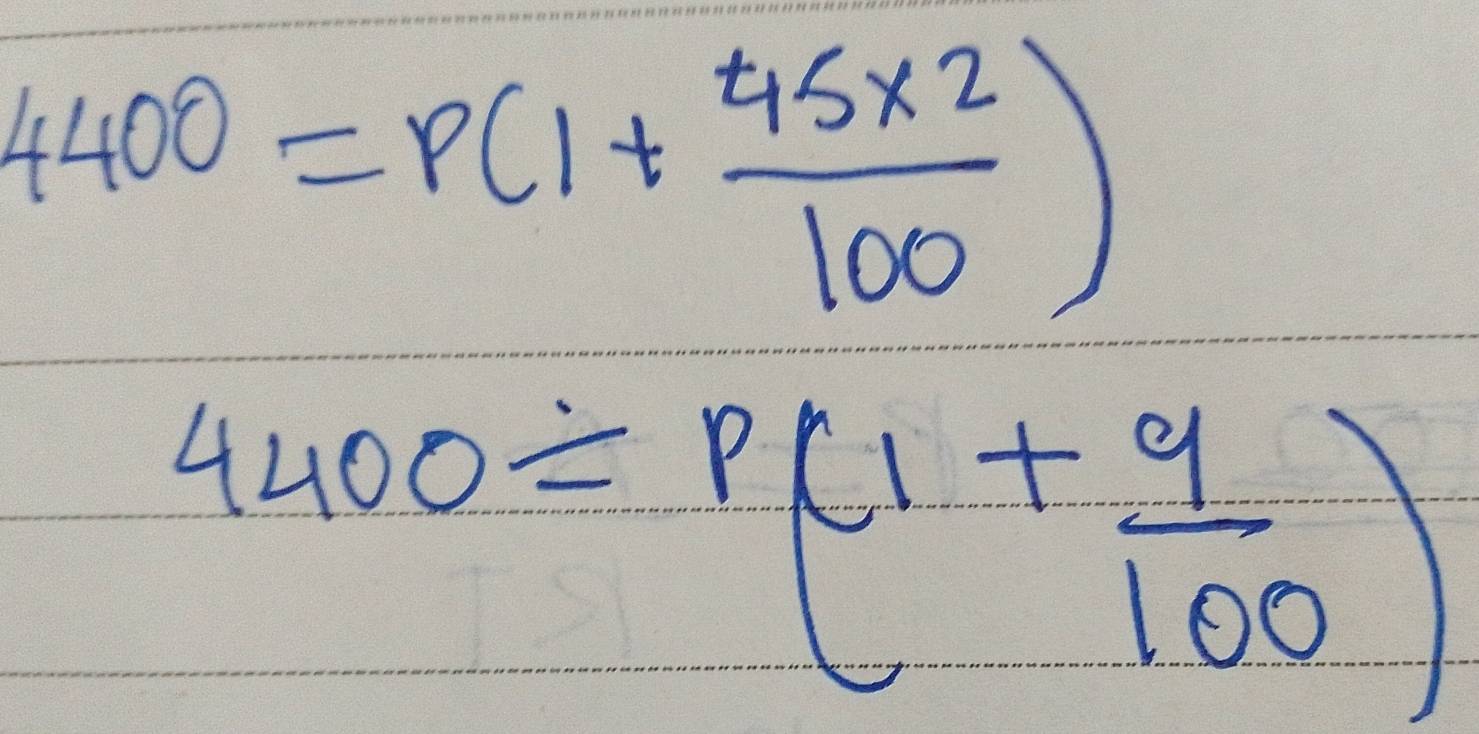 4400 = P(1 + 45×2/100)
4400 = P(1 + 9/100)